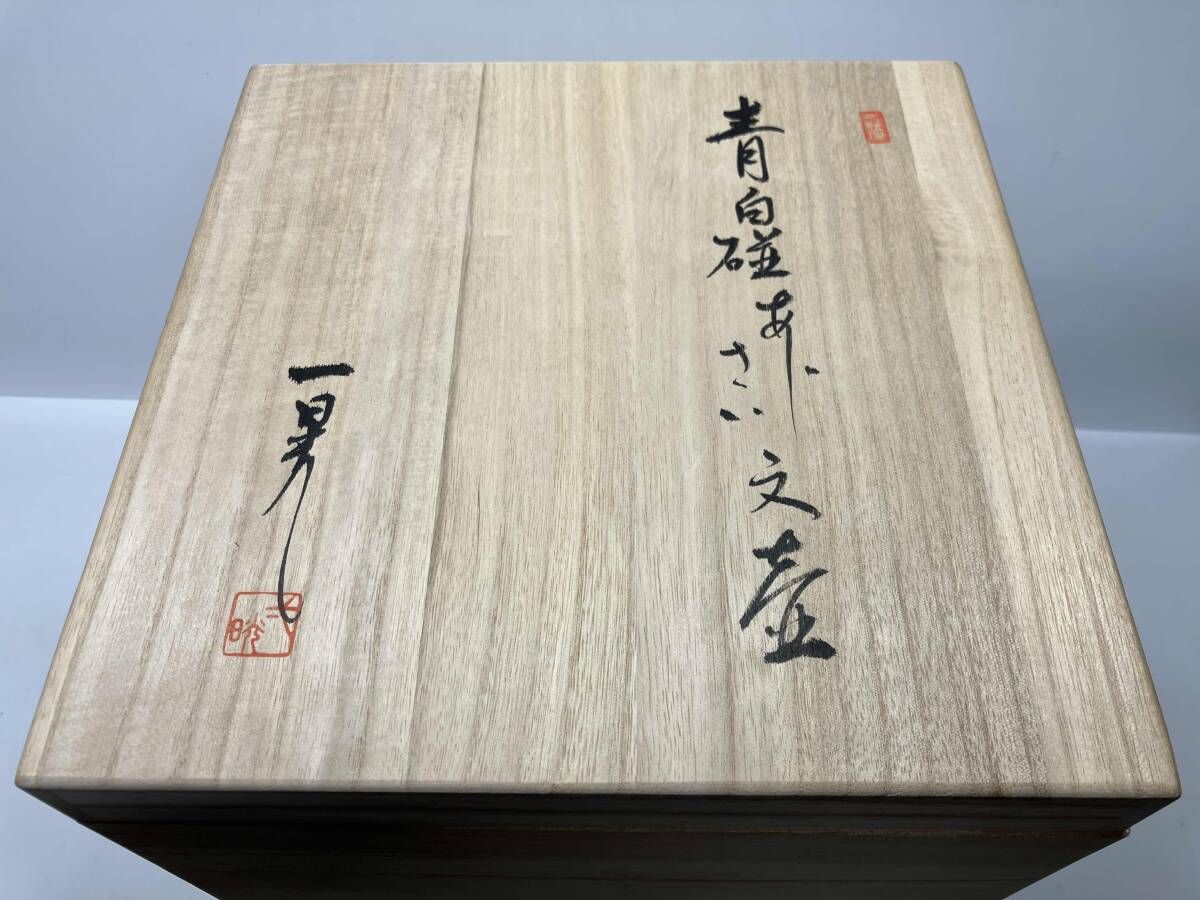 青白磁あじさい文壷
一晃